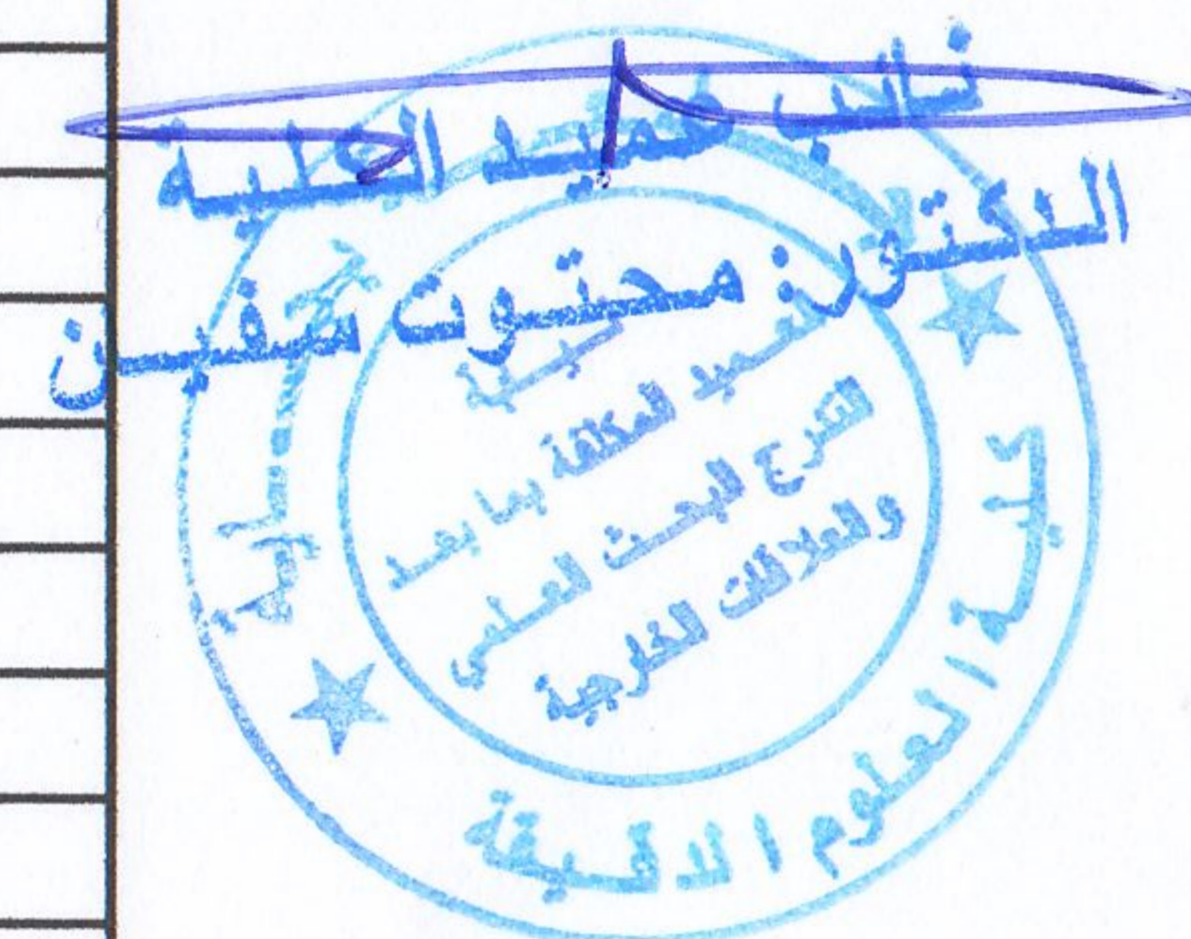 نائب عميد الكلية
الدكتور: محتوت سفيين
العميد المكلفة بما بعد
التدرج البحث العلمي
والعلاقات الخارجية
كلية العلوم الدقيقة